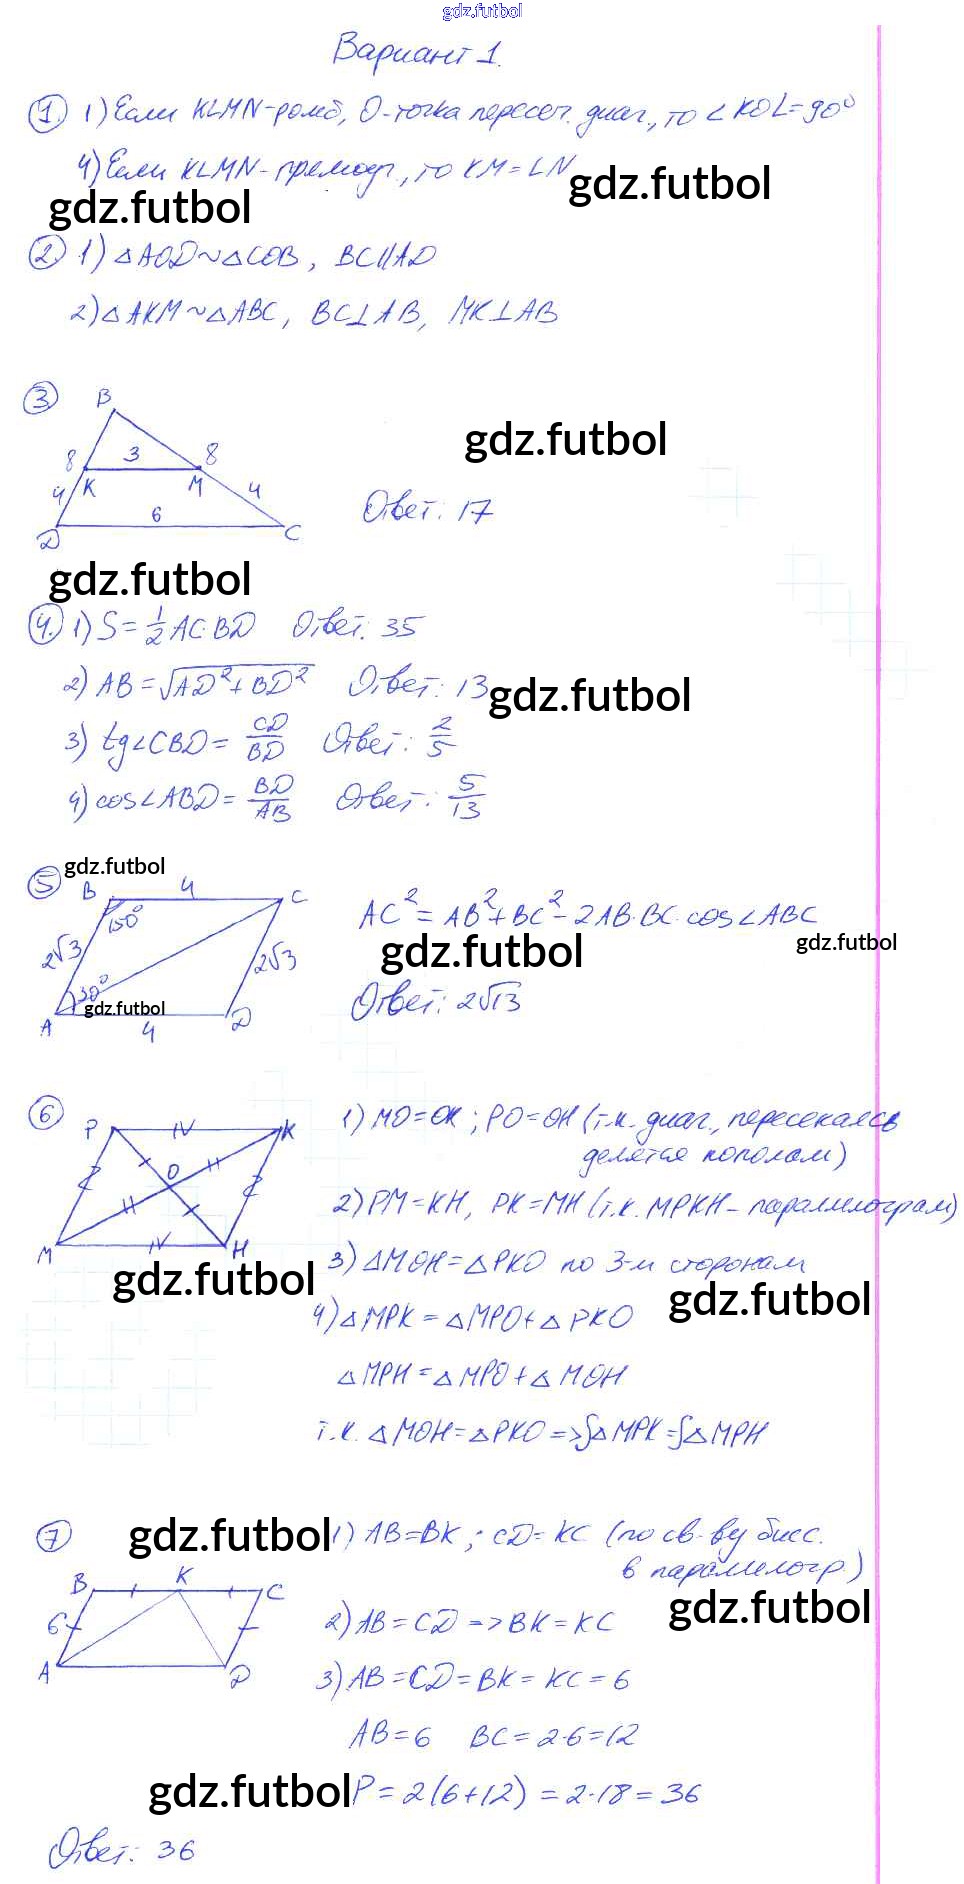 gdz.futbol
Вариант 1.
① 1) Если KLMN-ромб, O-точка пересеч. диаг., то ∠KOL=90°
4) Если KLMN-прямоуг., то KM=LN
gdz.futbol gdz.futbol
② 1) △AOD~△COB, BC||AD
2) △AKM~△ABC, BC⊥AB, MK⊥AB
③ B
gdz.futbol
8 3 8
4 K M 4
6 Ответ: 17
D C
gdz.futbol
④. 1) S=1/2 AC·BD Ответ: 35
2) AB=√AD²+BD² Ответ: 13
gdz.futbol
3) tg∠CBD= CD/BD Ответ: 2/5
4) cos∠ABD= BD/AB Ответ: 5/13
gdz.futbol
⑤ B 4 C
150° AC²=AB²+BC²-2AB·BC·cos∠ABC
2√3 2√3 gdz.futbol gdz.futbol
30° Ответ: 2√13
gdz.futbol
A 4 D
⑥ P IV K 1) MO=OK; PO=OH (т.к. диаг., пересекаясь
делятся пополам)
O
2) PM=KH, PK=MH (т.к. MPKH-параллелограм)
M IV H
3) △MOH=△PKO по 3-м сторонам
gdz.futbol gdz.futbol
4) △MPK=△MPO+△PKO
△MPH=△MPO+△MOH
т.к. △MOH=△PKO=>S△MPK=S△MPH
⑦ gdz.futbol 1) AB=BK; CD=KC (по св-ву бисс.
в параллелогр.)
B K C
gdz.futbol
6 2) AB=CD=>BK=KC
A D 3) AB=CD=BK=KC=6
AB=6 BC=2·6=12
gdz.futbol P=2(6+12)=2·18=36
Ответ: 36